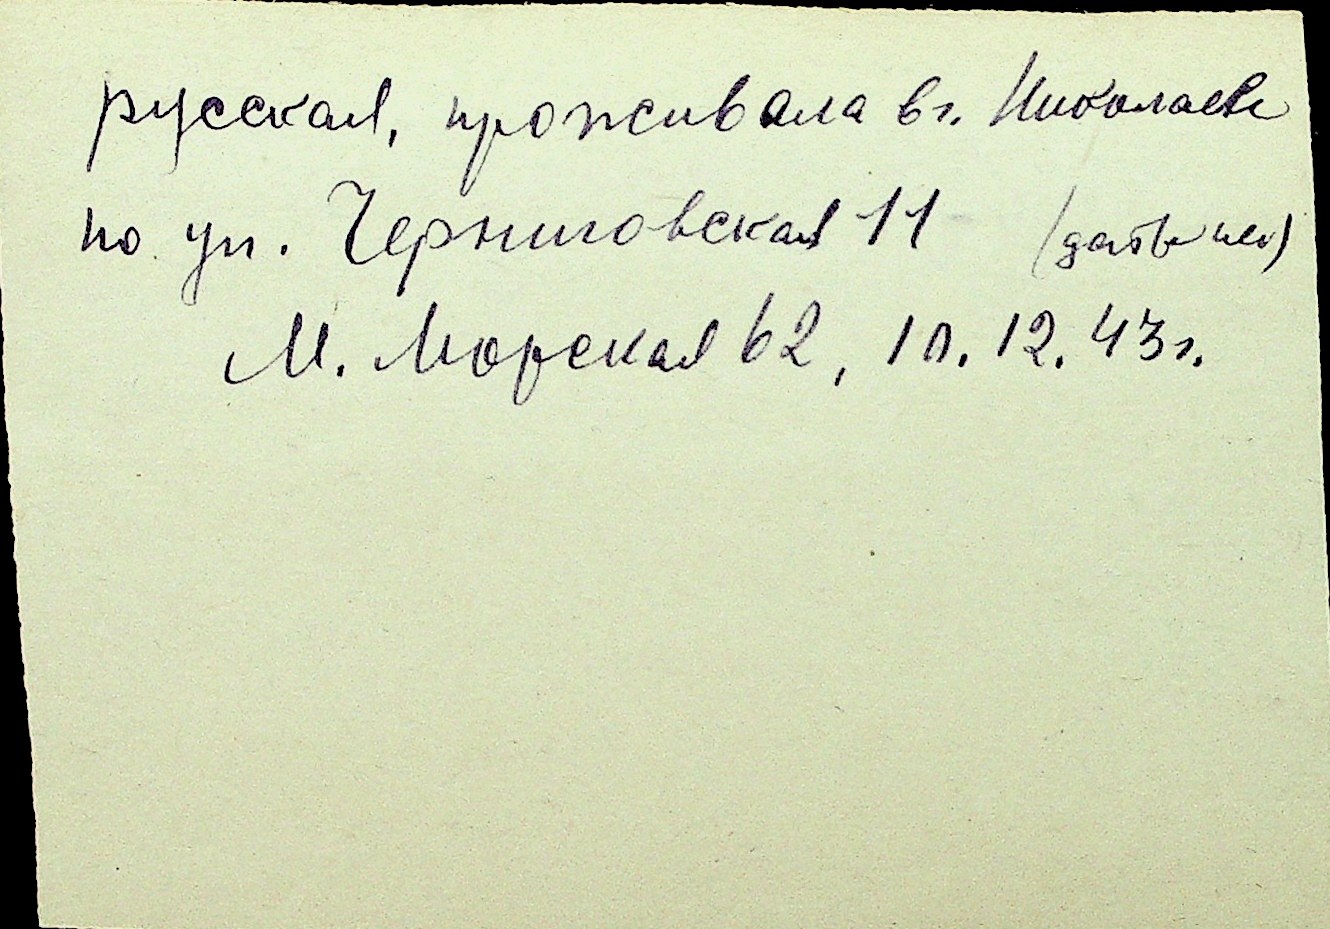 русская, проживала в г. Николаеве
по ул. Черниговская 11
М. Морская 62, 10. 12. 43 г.